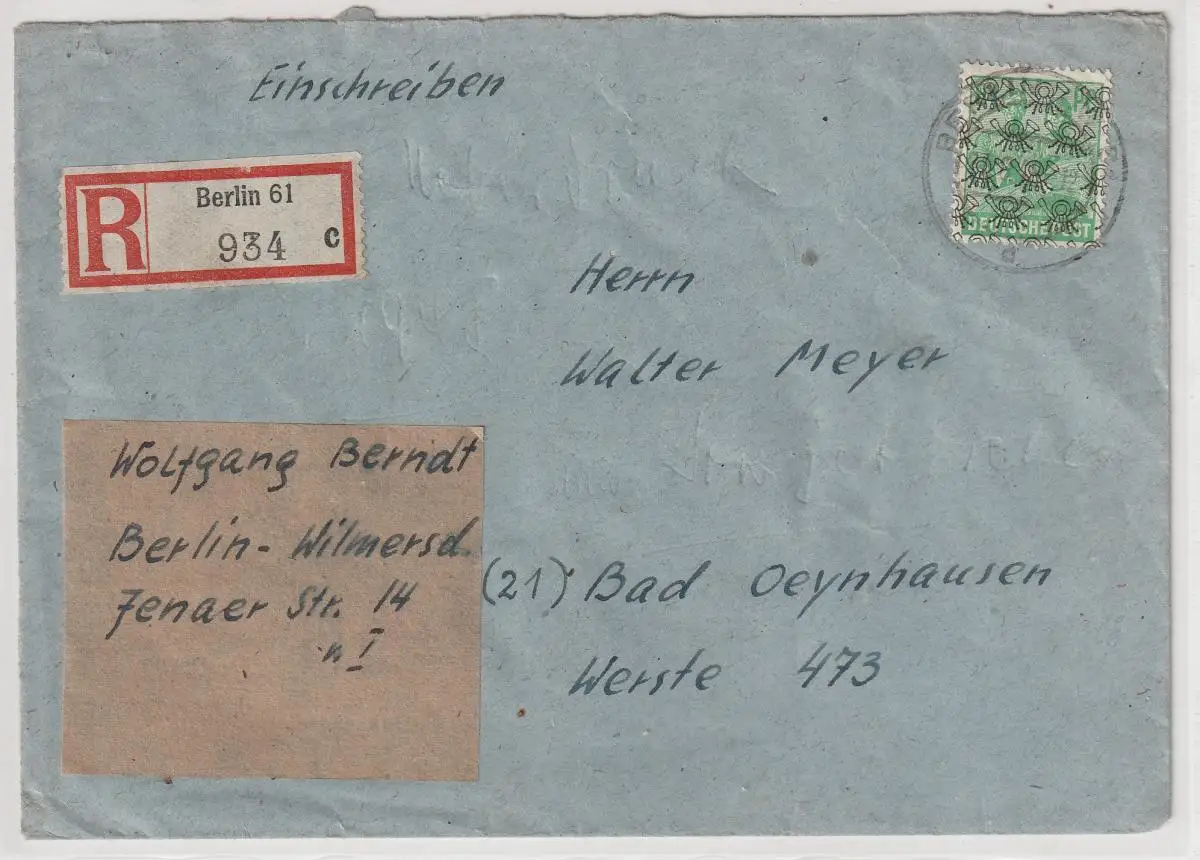 Einschreiben
R
Berlin 61
934 c
Herrn
Walter Meyer
Wolfgang Berndt
Berlin-Wilmersd.
Jenaer Str. 14
I
(21) Bad Oeynhausen
Werste 473
DEUTSCHE POST